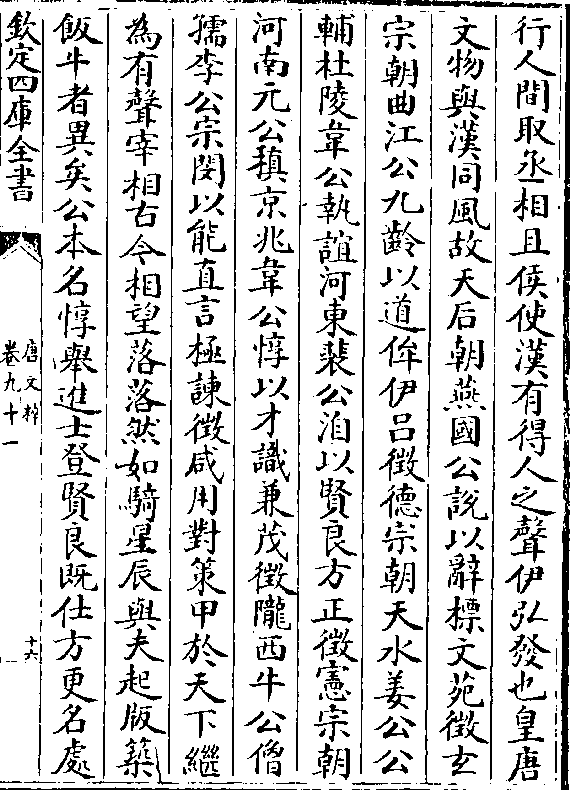 行人間取丞相且侯使漢有得人之聲伊弘發也皇唐
文物與漢同風故天后朝燕國公說以辭標文苑徵玄
宗朝曲江公九齡以道侔伊吕徵德宗朝天水姜公公
輔杜陵韋公執誼河東裴公洎以賢良方正徵憲宗朝
河南元公稹京兆韋公惇以才識兼茂徵隴西牛公僧
孺李公宗閔以能直言極諫徵咸用對策甲於天下繼
為有聲宰相古今相望落落然如騎星辰與夫起版築
飯牛者異矣公本名惇舉進士登賢良既仕方更名處
欽定四庫全書
唐文粹
卷九十一
十六